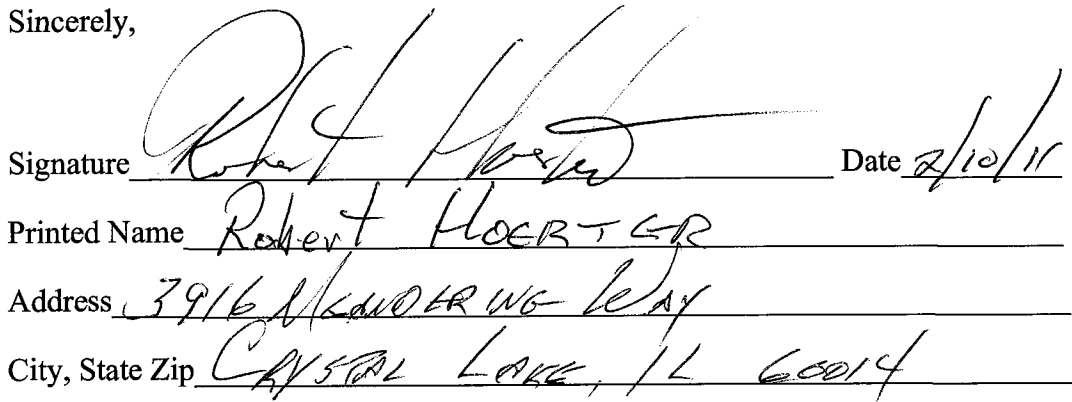 Sincerely,
Signature Robert Hoerter Date 2/10/11
Printed Name Robert HOERTER
Address 3916 MEANDERING WAY
City, State Zip CRYSTAL LAKE, IL 60014